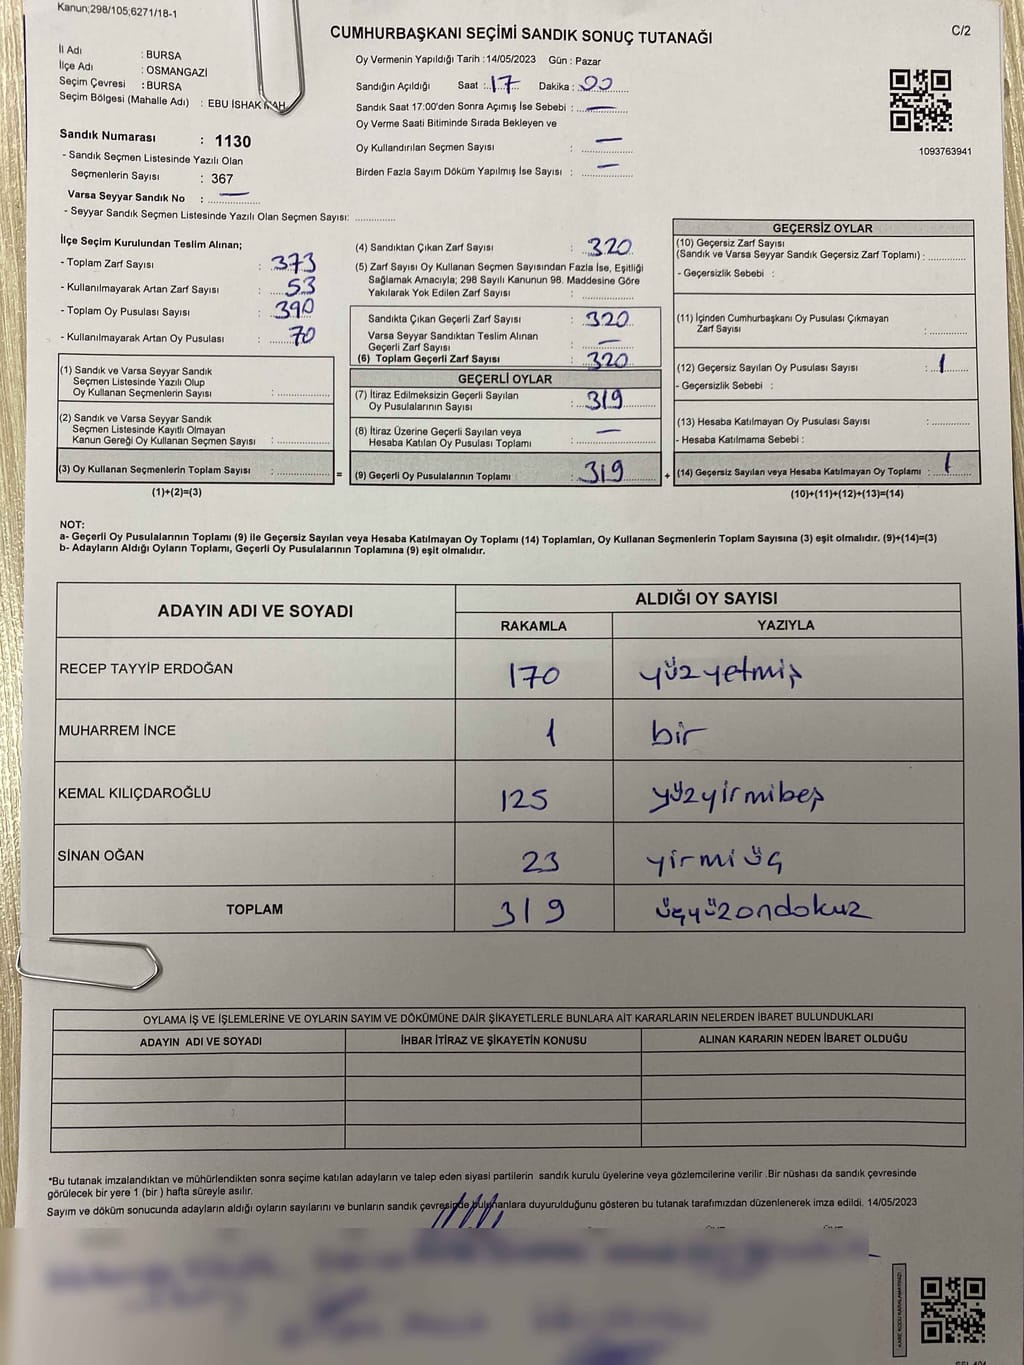 Kanun;298/105;6271/18-1
CUMHURBAŞKANI SEÇİMİ SANDIK SONUÇ TUTANAĞI
C/2
İl Adı : BURSA
İlçe Adı : OSMANGAZİ
Seçim Çevresi : BURSA
Seçim Bölgesi (Mahalle Adı) : EBU İSHAK MAH.
Sandık Numarası : 1130
- Sandık Seçmen Listesinde Yazılı Olan
Seçmenlerin Sayısı : 367
Varsa Seyyar Sandık No : —
- Seyyar Sandık Seçmen Listesinde Yazılı Olan Seçmen Sayısı: ............
Oy Vermenin Yapıldığı Tarih :14/05/2023 Gün : Pazar
Sandığın Açıldığı Saat : 17 Dakika : 00
Sandık Saat 17:00'den Sonra Açımış İse Sebebi : —
Oy Verme Saati Bitiminde Sırada Bekleyen ve
Oy Kullandırılan Seçmen Sayısı : —
Birden Fazla Sayım Döküm Yapılmış İse Sayısı : —
1093763941
İlçe Seçim Kurulundan Teslim Alınan;
- Toplam Zarf Sayısı : 373
- Kullanılmayarak Artan Zarf Sayısı : 53
- Toplam Oy Pusulası Sayısı : 390
- Kullanılmayarak Artan Oy Pusulası : 70
(1) Sandık ve Varsa Seyyar Sandık
Seçmen Listesinde Yazılı Olup
Oy Kullanan Seçmenlerin Sayısı : ............
(2) Sandık ve Varsa Seyyar Sandık
Seçmen Listesinde Kayıtlı Olmayan
Kanun Gereği Oy Kullanan Seçmen Sayısı : ............
(3) Oy Kullanan Seçmenlerin Toplam Sayısı : ............
(1)+(2)=(3)
=
(4) Sandıktan Çıkan Zarf Sayısı : 320
(5) Zarf Sayısı Oy Kullanan Seçmen Sayısından Fazla İse, Eşitliği
Sağlamak Amacıyla; 298 Sayılı Kanunun 98. Maddesine Göre
Yakılarak Yok Edilen Zarf Sayısı : ............
Sandıkta Çıkan Geçerli Zarf Sayısı : 320
Varsa Seyyar Sandıktan Teslim Alınan
Geçerli Zarf Sayısı : —
(6) Toplam Geçerli Zarf Sayısı : 320
GEÇERLİ OYLAR
(7) İtiraz Edilmeksizin Geçerli Sayılan
Oy Pusulalarının Sayısı : 319
(8) İtiraz Üzerine Geçerli Sayılan veya
Hesaba Katılan Oy Pusulası Toplamı : —
(9) Geçerli Oy Pusulalarının Toplamı : 319
+
GEÇERSİZ OYLAR
(10) Geçersiz Zarf Sayısı
(Sandık ve Varsa Seyyar Sandık Geçersiz Zarf Toplamı) : ............
- Geçersizlik Sebebi :
(11) İçinden Cumhurbaşkanı Oy Pusulası Çıkmayan
Zarf Sayısı : ............
(12) Geçersiz Sayılan Oy Pusulası Sayısı : 1
- Geçersizlik Sebebi :
(13) Hesaba Katılmayan Oy Pusulası Sayısı : ............
- Hesaba Katılmama Sebebi :
(14) Geçersiz Sayılan veya Hesaba Katılmayan Oy Toplamı : 1
(10)+(11)+(12)+(13)=(14)
NOT:
a- Geçerli Oy Pusulalarının Toplamı (9) ile Geçersiz Sayılan veya Hesaba Katılmayan Oy Toplamı (14) Toplamları, Oy Kullanan Seçmenlerin Toplam Sayısına (3) eşit olmalıdır. (9)+(14)=(3)
b- Adayların Aldığı Oyların Toplamı, Geçerli Oy Pusulalarının Toplamına (9) eşit olmalıdır.
ADAYIN ADI VE SOYADI ALDIĞI OY SAYISI
RAKAMLA YAZIYLA
RECEP TAYYİP ERDOĞAN 170 yüzyetmiş
MUHARREM İNCE 1 bir
KEMAL KILIÇDAROĞLU 125 yüzyirmibeş
SİNAN OĞAN 23 yirmiüç
TOPLAM 319 üçyüzondokuz
OYLAMA İŞ VE İŞLEMLERİNE VE OYLARIN SAYIM VE DÖKÜMÜNE DAİR ŞİKAYETLERLE BUNLARA AİT KARARLARIN NELERDEN İBARET BULUNDUKLARI
ADAYIN ADI VE SOYADI İHBAR İTİRAZ VE ŞİKAYETİN KONUSU ALINAN KARARIN NEDEN İBARET OLDUĞU
*Bu tutanak imzalandıktan ve mühürlendikten sonra seçime katılan adayların ve talep eden siyasi partilerin sandık kurulu üyelerine veya gözlemcilerine verilir .Bir nüshası da sandık çevresinde
görülecek bir yere 1 (bir ) hafta süreyle asılır.
Sayım ve döküm sonucunda adayların aldığı oyların sayılarını ve bunların sandık çevresinde bulunanlara duyurulduğunu gösteren bu tutanak tarafımızdan düzenlenerek imza edildi. 14/05/2023